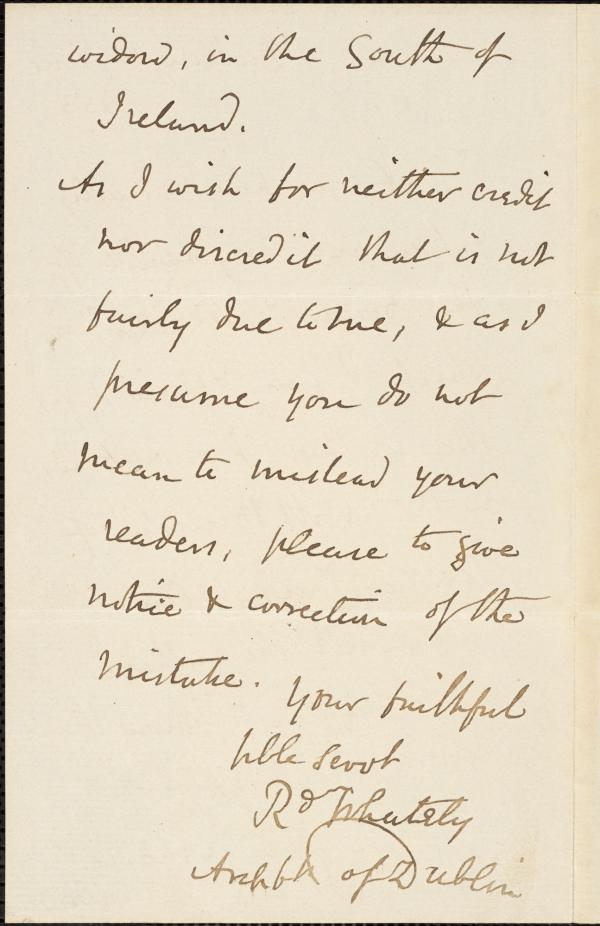 widow, in the South of
Ireland.
As I wish for neither credit
nor discredit that is not
fairly due to me, & as I
presume you do not
mean to mislead your
readers, please to give
notice & correction of the
mistake.
Your faithful
hble servt
Rd Whately
Archbp of Dublin